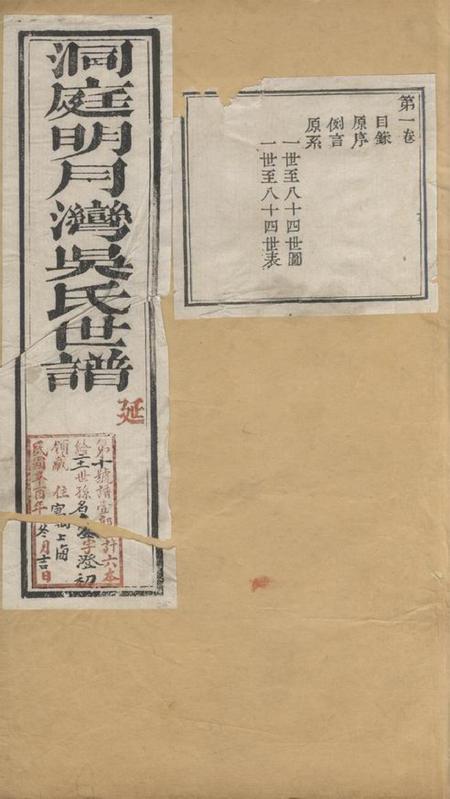 第一卷
目錄
原序
例言
原系
一世至八十四世圖
一世至八十四世表
洞庭明月灣吳氏世譜
延
第十號譜壹部計六本
給 世孫名 字澄初
領藏 住寓 上海
民國辛酉年冬月吉日